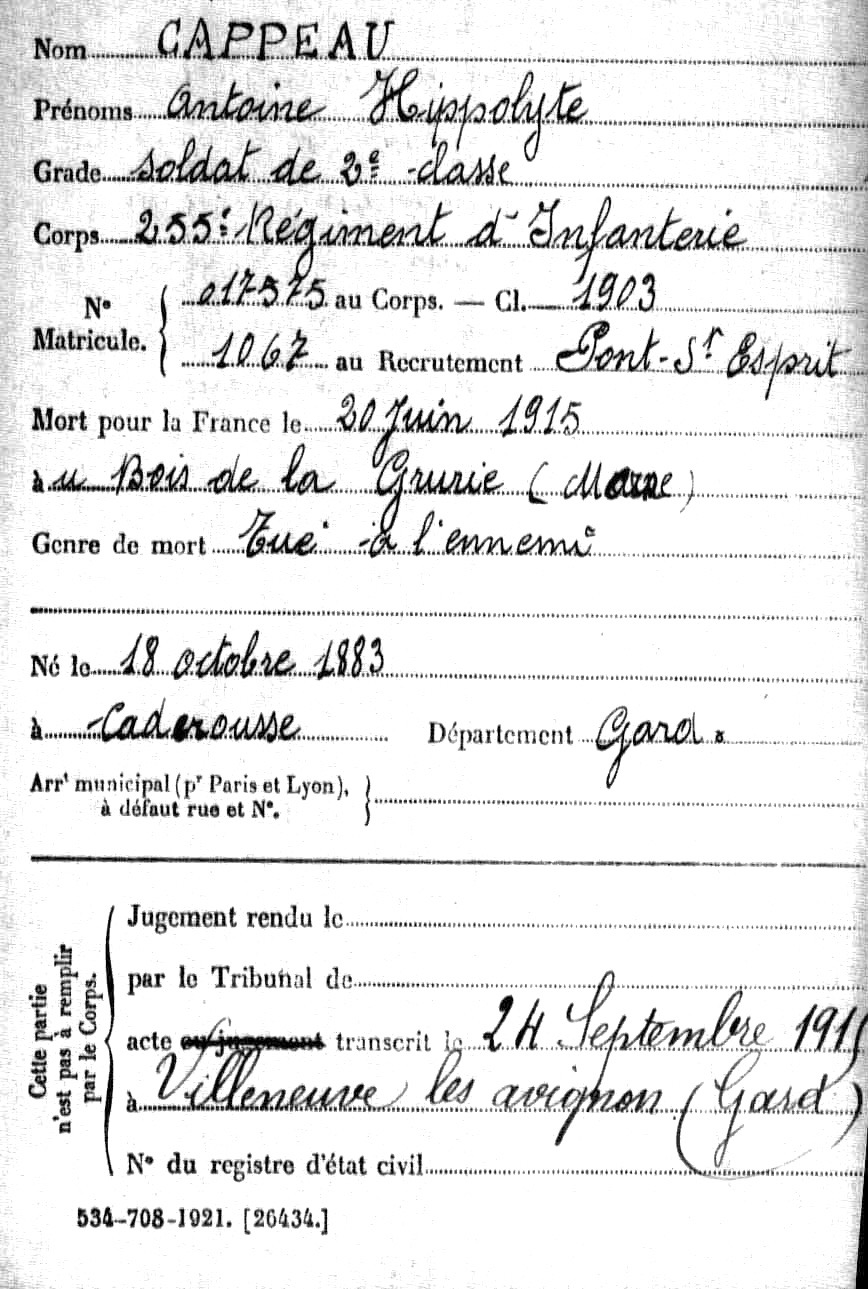 Nom CAPPEAU
Prénoms Antoine Hippolyte
Grade Soldat de 2e classe
Corps 255e Régiment d'Infanterie
No Matricule. { 017575 au Corps. — Cl. 1903
1067 au Recrutement Pont-St Esprit
Mort pour la France le 20 Juin 1915
à u Bois de la Grurie (Marne)
Genre de mort Tué à l'ennemi
Né le 18 octobre 1883
à Caderousse Département Gard
Arrt municipal (pr Paris et Lyon),
à défaut rue et No.
Cette partie
n'est pas à remplir
par le Corps.
Jugement rendu le
par le Tribunal de
acte ou jugement transcrit le 24 Septembre 191
à Villeneuve les avignon (Gard)
No du registre d'état civil
534-708-1921. [26434.]